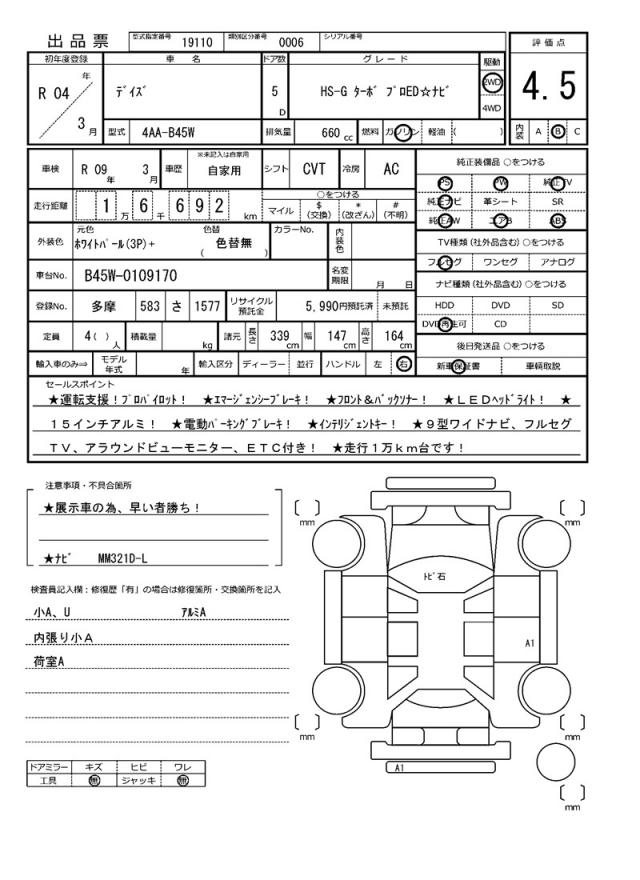 出品票 型式指定番号 19110 類別区分番号 0006 シリアル番号
初年度登録 車名 ドア数 グレード 駆動 評価点
R 04 年 3 月 ﾃﾞｲｽﾞ 5 D HS-G ﾀｰﾎﾞ ﾌﾟﾛED☆ﾅﾋﾞ 2WD 4WD 4.5
型式 4AA-B45W 排気量 660 cc 燃料 ガソリン 軽油 ( ) 内装 A B C
車検 R 09 年 3 月 車歴 ※未記入は自家用 自家用 シフト CVT 冷房 AC 純正装備品 ○をつける
PS PW 純正TV
走行距離 1 万 6 千 6 9 2 km ○をつける
マイル $(交換) *(改ざん) #(不明) 純正ナビ 革シート SR
純正AW エアB ABS
外装色 元色 ﾎﾜｲﾄﾊﾟｰﾙ(3P)+ 色替 ( 色替無 ) カラーNo. 内装色 TV種類(社外品含む)○をつける
フルセグ ワンセグ アナログ
車台No. B45W-0109170 名変期限 月 日 ナビ種類(社外品含む)○をつける
登録No. 多摩 583 さ 1577 リサイクル預託金 5,990円預託済 未預託 HDD DVD SD
DVD再生可 CD
定員 4( )人 積載量 kg 諸元 長さ 339 cm 幅 147 cm 高さ 164 cm 後日発送品 ○をつける
輸入車のみ⇒ モデル年式 年 輸入区分 ディーラー 並行 ハンドル 左 右 新車保証書 車輌取説
セールスポイント
★運転支援！ﾌﾟﾛﾊﾟｲﾛｯﾄ！ ★ｴﾏｰｼﾞｪﾝｼｰﾌﾞﾚｰｷ！ ★ﾌﾛﾝﾄ＆ﾊﾞｯｸｿﾅｰ！ ★ＬＥＤﾍｯﾄﾞﾗｲﾄ！ ★
１５インチアルミ！ ★電動ﾊﾟｰｷﾝｸﾞﾌﾞﾚｰｷ！ ★ｲﾝﾃﾘｼﾞｪﾝﾄｷｰ！ ★９型ワイドナビ、フルセグ
ＴＶ、アラウンドビューモニター、ＥＴＣ付き！ ★走行１万ｋｍ台です！
注意事項・不具合箇所
★展示車の為、早い者勝ち！
★ﾅﾋﾞ MM321D-L
検査員記入欄：修復歴「有」の場合は修復箇所・交換箇所を記入
小A、U ｱﾙﾐA
内張り小A
荷室A
ドアミラー キズ ヒビ ワレ
工具 無 ジャッキ 無
[ ] mm
[ ] mm
ﾄﾋﾞ石
A1
[ ] mm
[ ] mm
A1
[ ] mm